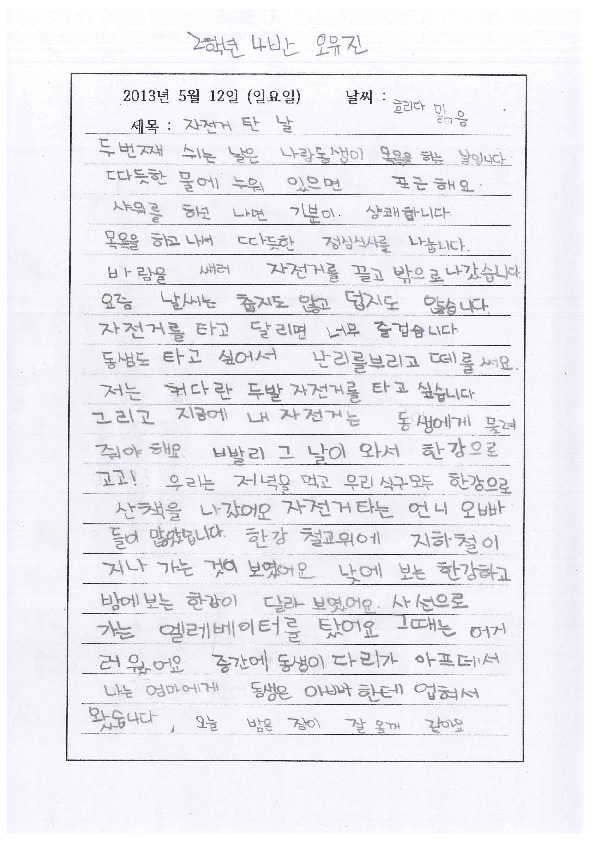 2학년 4반 오유진
2013년 5월 12일 (일요일) 날씨 : 흐리다 맑음
제목 : 자전거 탄 날
두번째 쉬는 날은 나랑동생이 목욕을 하는 날입니다
따듯한 물에 누워 있으면 포근해요.
샤워를 하고 나면 기분이. 상쾌합니다.
목욕을 하고 나서 따듯한 점심식사를 나눕니다.
바람을 쐐러 자전거를 끌고 밖으로 나갔습니다
요즘 날씨는 춥지도 않고 덥지도 않습니다.
자전거를 타고 달리면 너무 즐겁습니다
동생도 타고 싶어서 난리를부리고 떼를 써요.
저는 커다란 두발 자전거를 타고 싶습니다
그리고 지금에 내 자전거는 동생에게 물려
줘야 해요. 빨리 그 날이 와서 한강으로
고고! 우리는 저녁을 먹고 우리 식구모두 한강으로
산책을 나갔어요 자전거타는 언니 오빠
들이 많았습니다. 한강 철교위에 지하철이
지나 가는 것이 보였어요 낮에 보는 한강하고
밤에보는 한강이 달라 보였어요. 사선으로
가는 엘레베이터를 탔어요 그때는 어지
러웠어요 중간에 동생이 다리가 아프데서
나는 엄마에게 동생은 아빠한테 업혀서
왔습니다. 오늘 밤은 잠이 잘 올꺼 같아요